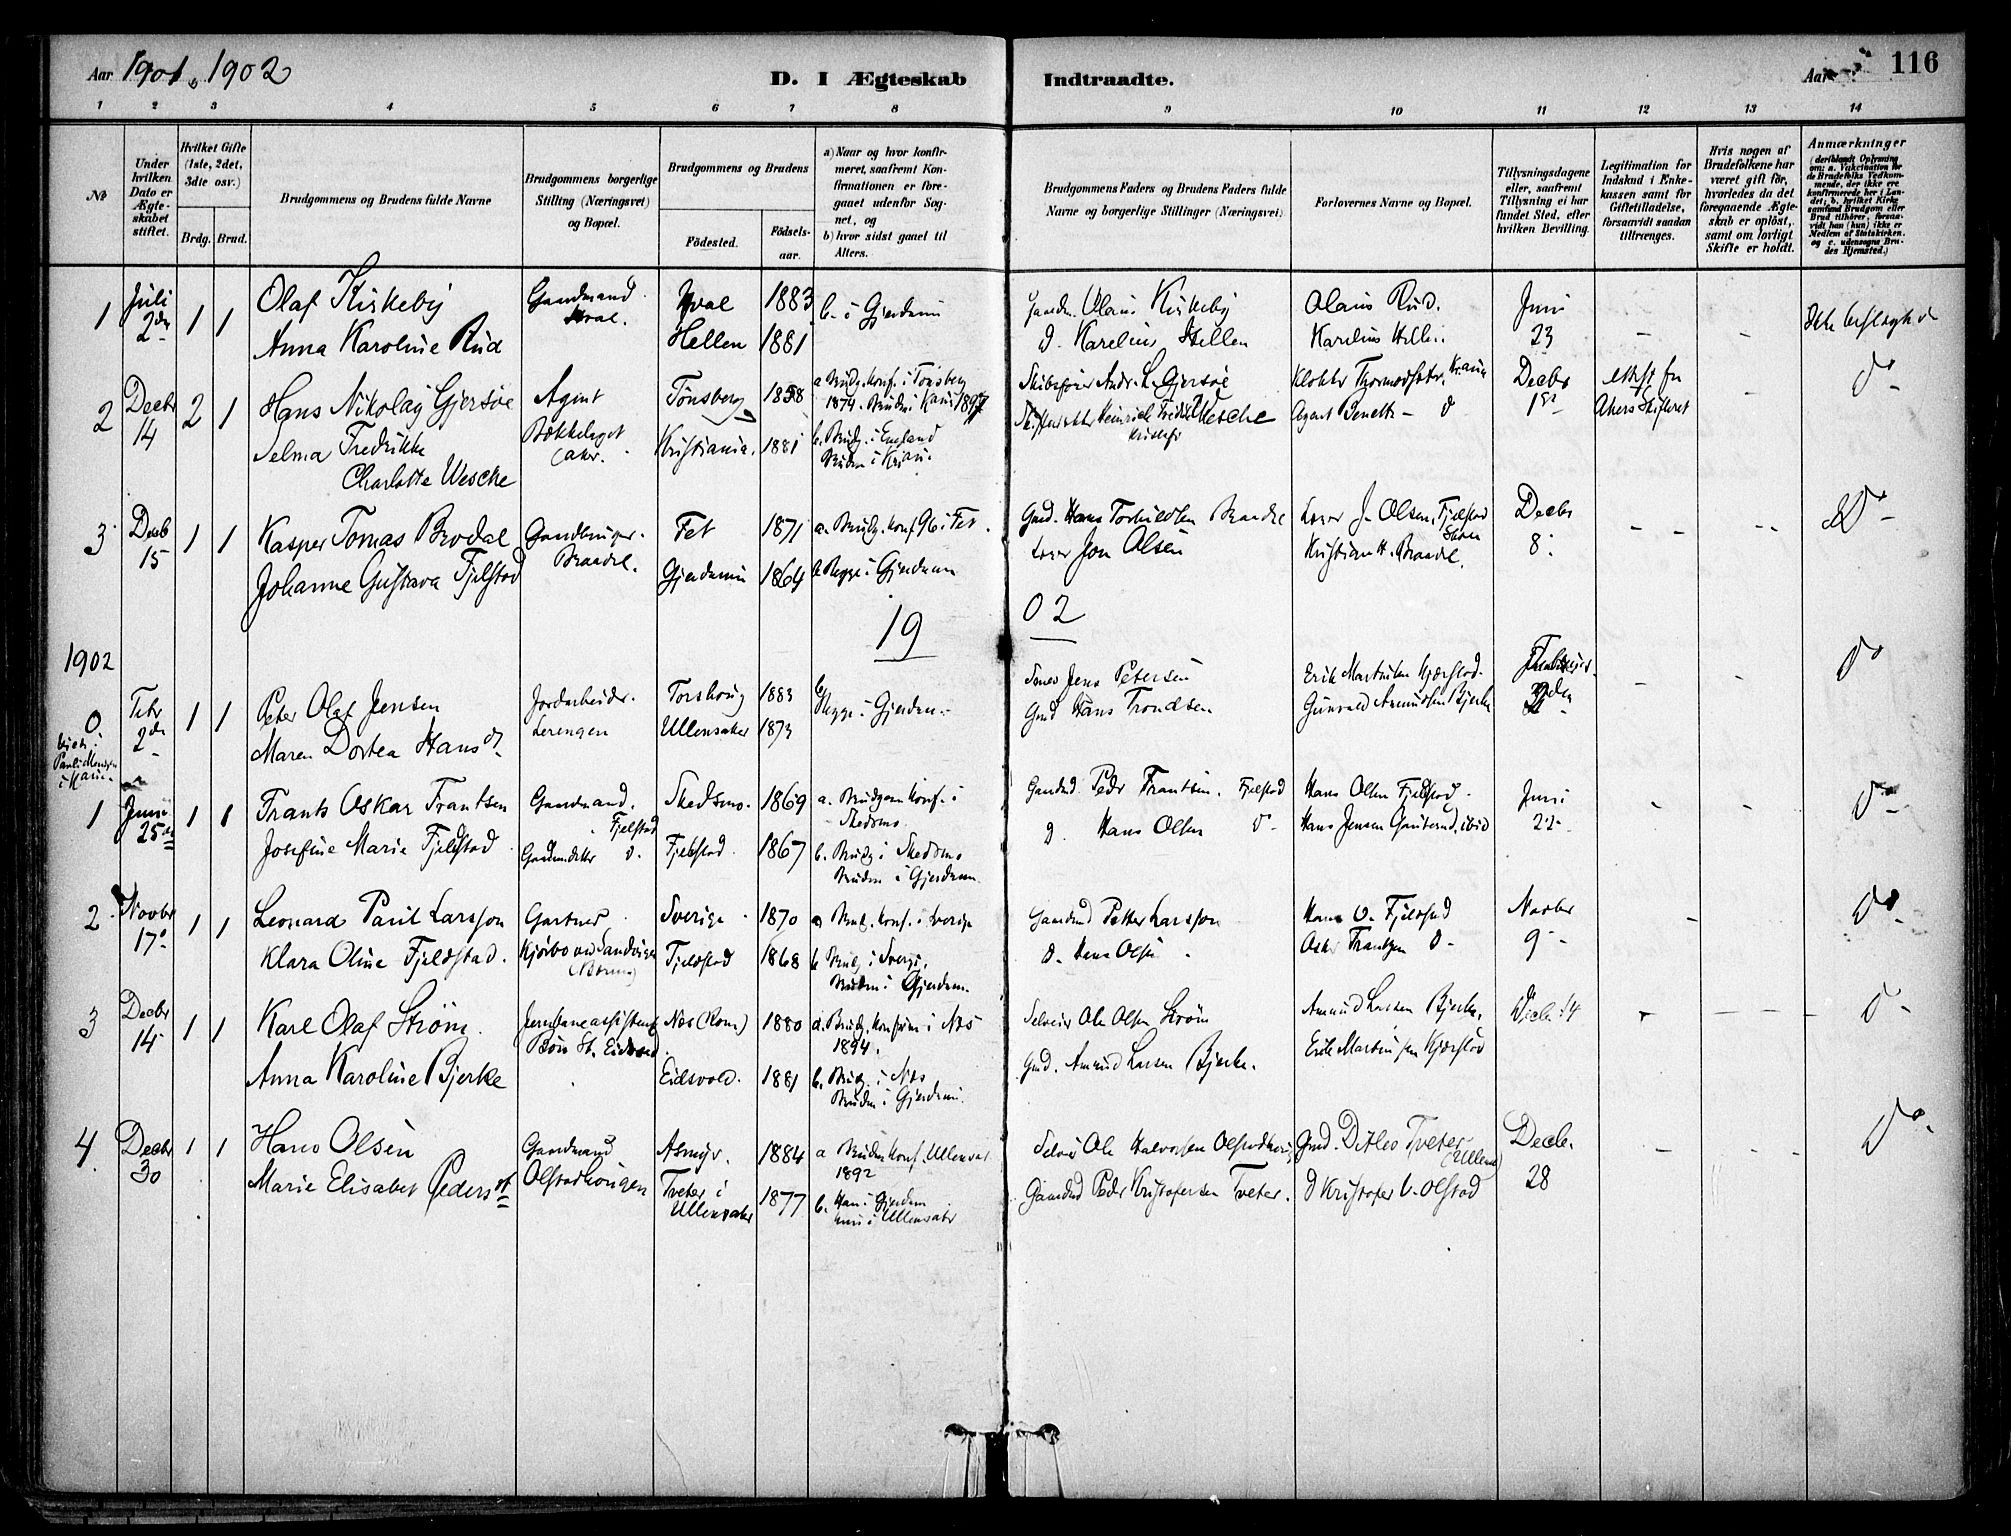 Aar 1901 & 1902
D. I Ægteskab Indtraadte.
Aar
116
1 2 3 4 5 6 7 8 9 10 11 12 13 14
No
Under hvilken Dato er Ægteskabet stiftet.
Hvilket Gifte (1ste, 2det, 3die osv.)
Brdg. Brud.
Brudgommens og Brudens fulde Navne
Brudgommens borgerlige Stilling (Næringsvei) og Bopæl.
Brudgommens og Brudens
Fødested.
Fødselsaar.
a) Naar og hvor konfirmeret, saafremt Konfirmationen er foregaaet udenfor Sognet, og
b) hvor sidst gaaet til Alters.
Brudgommens Faders og Brudens Faders fulde Navne og borgerlige Stillinger (Næringsvei)
Forlovernes Navne og Bopæl.
Tillysningsdagene eller, saafremt Tillysning ei har fundet Sted, efter hvilken Bevilling.
Legitimation for Indskud i Enkekassen samt for Giftetilladelse, forsaavidt saadan tiltrænges.
Hvis nogen af Brudefolkene har været gift før, hvorledes da det foregaaende Ægteskab er opløst, samt om lovligt Skifte er holdt.
Anmærkninger (deriblandt Oplysning om: a. Vakcination for de Brudefolks Vedkommende, der ikke ere konfirmerede her i Landet; b. hvilket Kirkesamfund Brudgom eller Brud tilhører, forsaavidt han (hun) ikke er Medlem af Statskirken. og c. udensogns Brudes Hjemsted.)
1 Juli 2den 1 1 Olaf Kirkeby Gaardmand Hval. Hval 1883 b. i Gjerdrum Olaus Kirkeby Olaus Rud. Juni 23 - - Ikke beslægtede
Anna Karoline Rud Hellen 1881 D. Karelius Hellen Karelius Hellen
2 Decbr 14 2 1 Hans Nikolay Gjersøe Agent Bækkelaget Aker. Tønsberg 1858 a Brudg. Konf. i Tønsberg 1874. Bruden i Kania 1897 Skibsfører Andr. L. Gjersøe Decbr 1st - do
Selma Fredrikke Charlotte Wesche Kristiania. 1881 b. Brudg. i England Bruden i Kania. Agent Bennett - do Akers Skifteret
3 Decb 15 1 1 Kasper Tomas Brodal Gaardbruger. Fet 1871 a. Brudg. Konf 96 i Fet. Gmd. Hans J. Olsen, Fjelstad Decbr 8. - - do -
Johanne Gustava Fjelstad Gjerdrum 1864 b Begge i Gjerdrum Jon Olsen Kristian H.
19 02
1902
0 Febr 2den 1 1 Peter Olaf Jensen Jordarbeider. Lerengen Torshoug 1883 b. Begge i Gjerdrum Jens Petersen Erik Martinsen Kjærstad. - - do
Maren Dortea Hansdt. Ullensaker 1873 Gmd Hans Trondsen Amundsen Bjerke
1 Juni 25de 1 1 Frants Oskar Frantsen Gaardmand. Fjelstad Skedsmo. 1869 a. Brudgom Konf. i Skedsmo. Gaardmd. Peder Frantsen. Fjelstad Hans Olsen Fjelstad. Juni 22 - - do
Josefine Marie Fjelstad Fjelstad. 1867 b. Brudg i Skedsmo Bruden i Gjerdrum. D. Hans Olsen do - Hans Jensen ibid
2 Novbr 17 1 1 Leonard Paul Larsson Gartner Sverige 1870 a Brudg. Konf. i Sverige Gaardmd Petter Larsson Hans O. Fjeldstad Novbr 9 - - do
Klara Oline Fjeldstad. Kjørbo ved Sandviken (Bærum) Fjeldstad 1868 b Brudg i Sverige. Bruden i Gjerdrum. D. Hans Olsen Oskar Frantzen D -
3 Decbr 14 1 1 Karl Olaf Strøm. Jernbaneassistent Bøn St. Eidsvold Næs (Rom.) 1880 a. Brudg. konfirm i Næs 1894. Selveier Ole Olsen Strøm Amund Larsen Bjerke. - - - - do
Anna Karoline Bjerke Eidsvold. 1881 b. Brudg. i Næs Bruden i Gjerdrum. Gmd. Amund Larsen Bjerke. Erik Martinsen Kjærstad
4. Decbr 30 1 1 Hans Olsen Gaardmand Asmyr. 1884 a Bruden Konf. Ullensaker 1892 Selveier Ole Halvorsen Gmd. Ditlev Tveter (Ullens) Decbr. 28 - - do
Marie Elisabet Pedersdt Olstadhougen Tveter i Ullensaker 1877 b. Han i Gjerdrum hun i Ullensaker Gaardmd Peder Kristofersen Tveter. D Kristofer O. Olstad